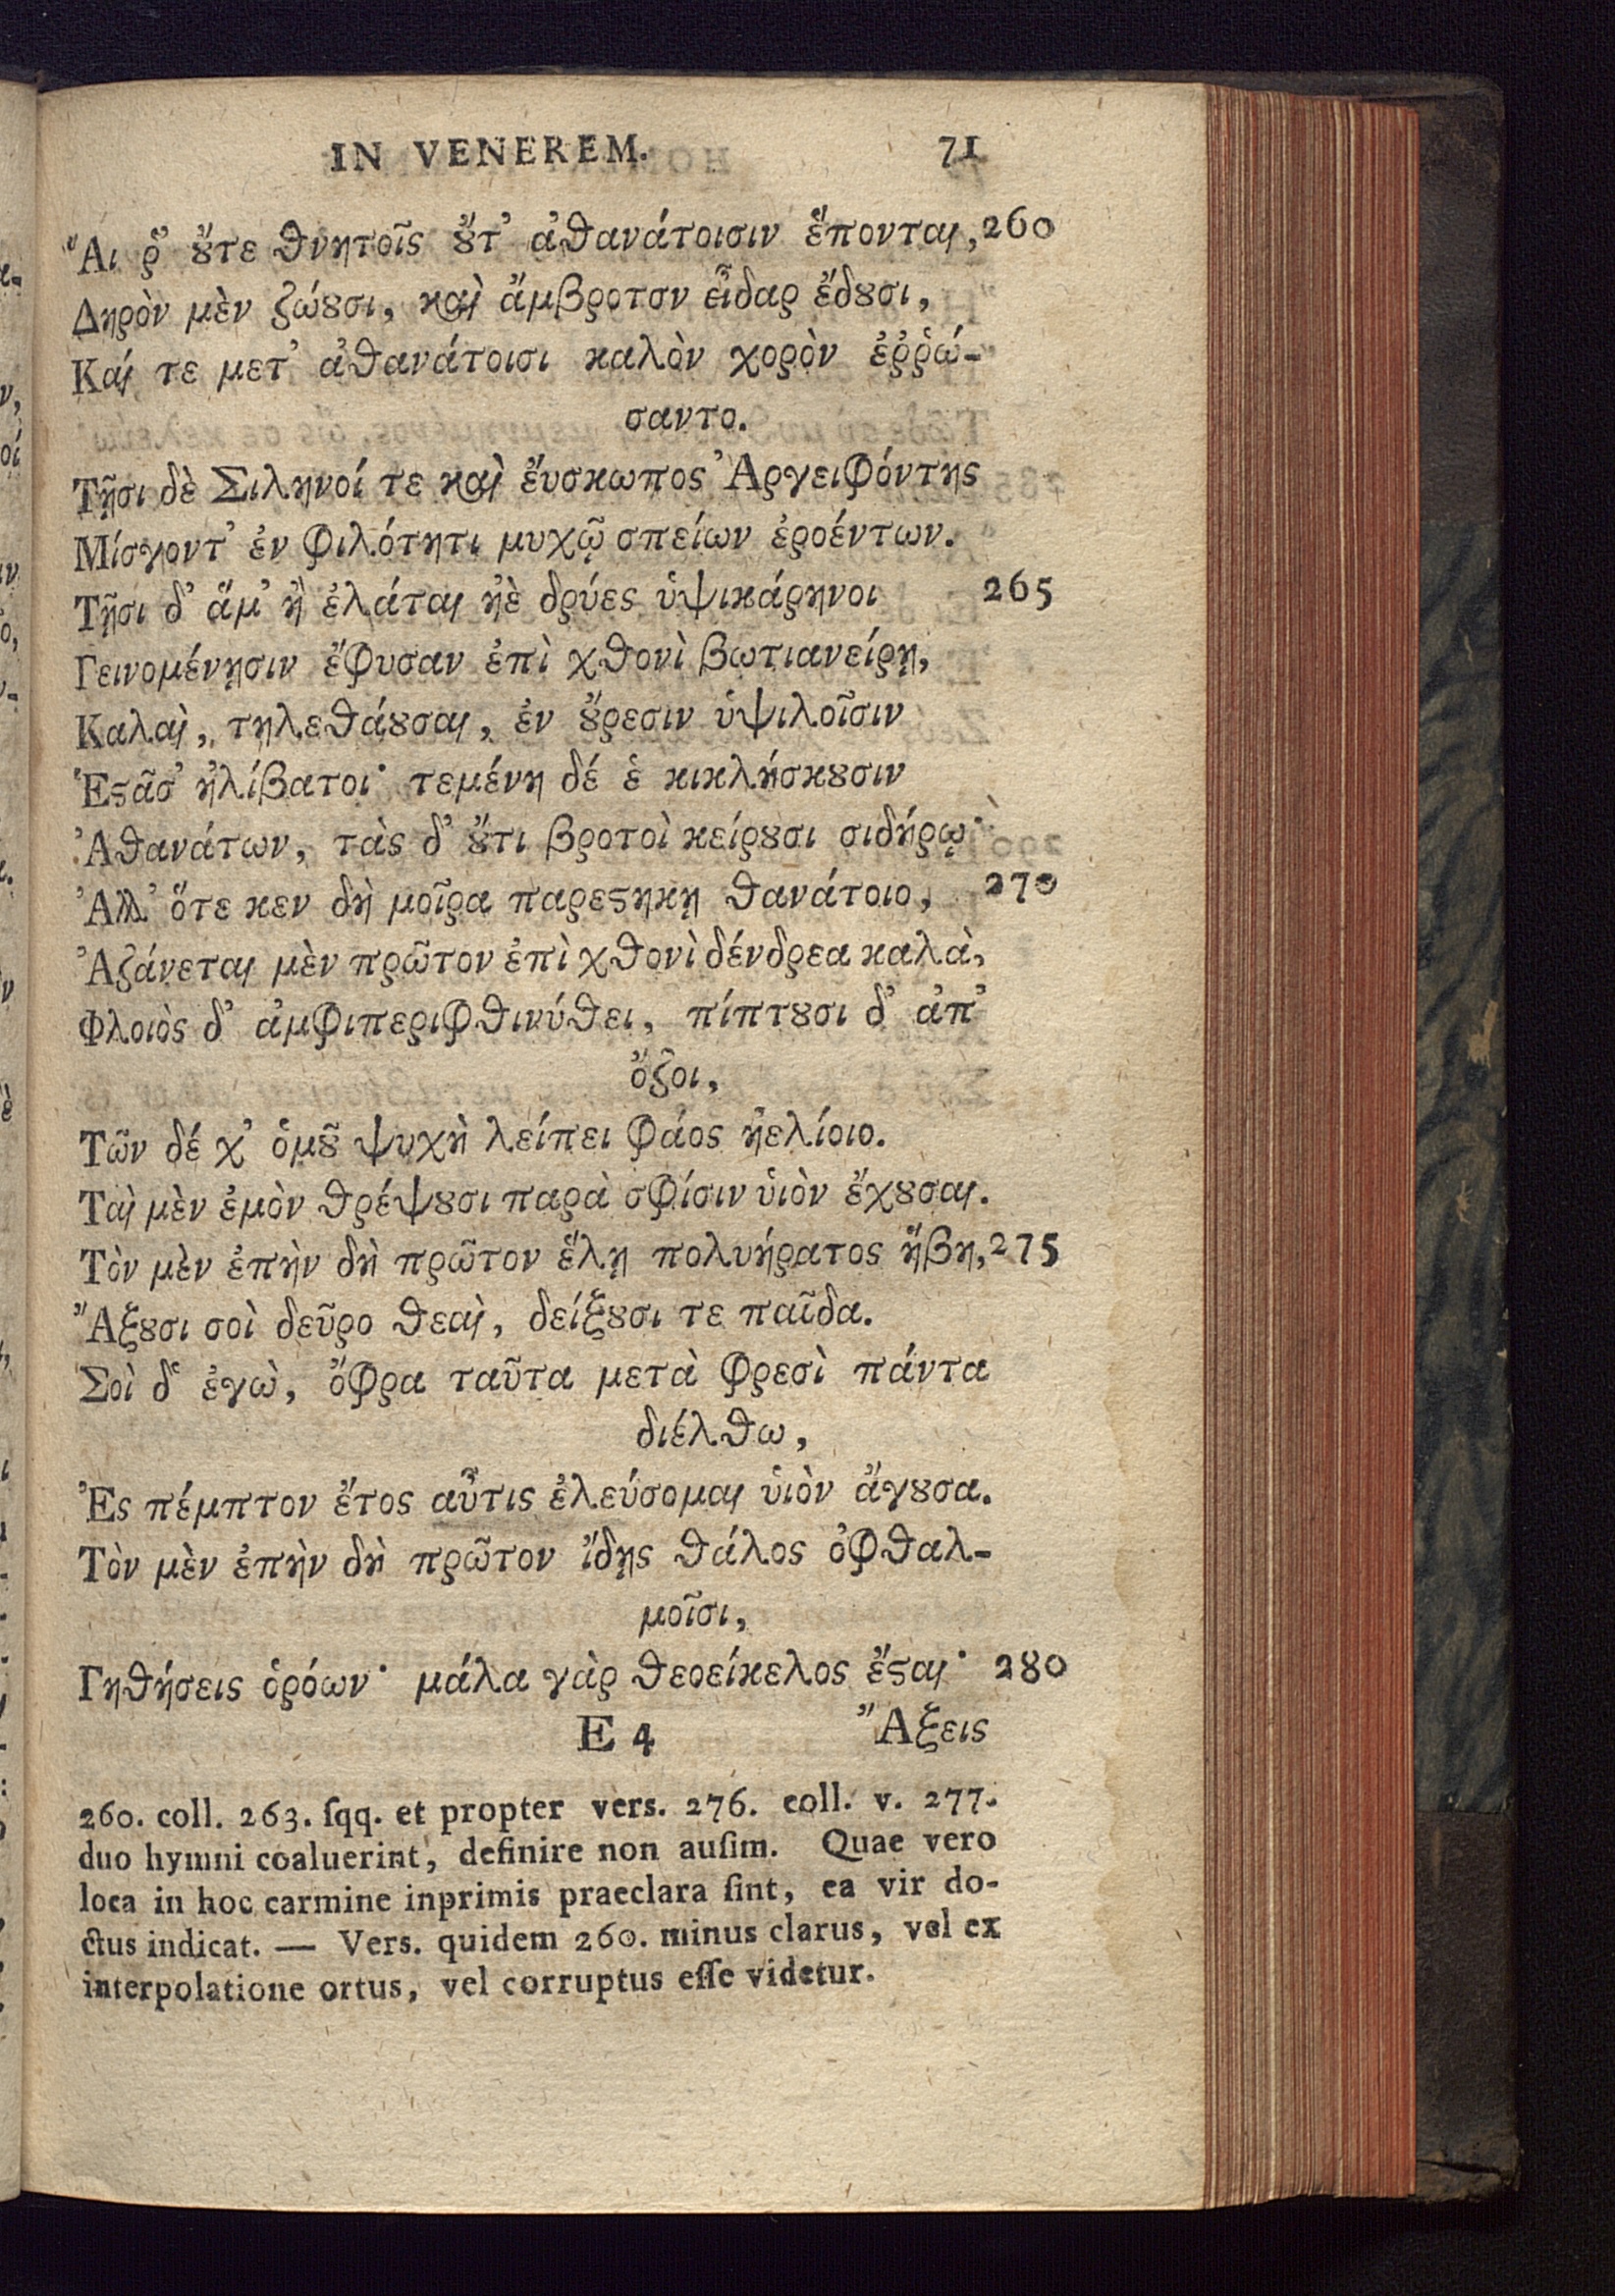 IN VENEREM. 71
Ἅι ῥ᾽ ȣ̓́τε θνητοῖς ȣ̓́τ᾽ ἀθανάτοισιν ἕπονται, 260
Δηρὸν μὲν ζώȣσι, καὶ ἄμβροτον εἶδαρ ἔδȣσι,
Καί τε μετ᾽ ἀθανάτοισι καλὸν χορὸν ἐῤῥώ-
σαντο.
Τῇσι δὲ Σιληνοί τε καὶ ἔυσκωπος Ἀργειφόντης
Μίσγοντ᾽ ἐν φιλότητι μυχῷ σπείων ἐροέντων.
Τῇσι δ᾽ ἅμ᾽ ἢ ἐλάται ἠὲ δρύες ὑψικάρηνοι 265
Γεινομένῃσιν ἔφυσαν ἐπὶ χθονὶ βωτιανείρῃ,
Καλαὶ, τηλεθάȣσαι, ἐν ȣ̓́ρεσιν ὑψιλοῖσιν
Ἑϛᾶσ᾽ ἠλίβατοι· τεμένη δέ ἑ κικλήσκȣσιν
Ἀθανάτων, τὰς δ᾽ ȣ̓́τι βροτοὶ κείρȣσι σιδήρῳ·
Ἀλλ᾽ ὅτε κεν δὴ μοῖρα παρεϛηκῃ θανάτοιο, 270
Ἀζάνεται μὲν πρῶτον ἐπὶ χθονὶ δένδρεα καλὰ,
Φλοιὸς δ᾽ ἀμφιπεριφθινύθει, πίπτȣσι δ᾽ ἀπ᾽
ὄζοι,
Τῶν δέ χ᾽ ὁμȣ͂ ψυχὴ λείπει φάος ἠελίοιο.
Ταὶ μὲν ἐμὸν θρέψȣσι παρὰ σφίσιν ὑιὸν ἔχȣσαι.
Τὸν μὲν ἐπὴν δὴ πρῶτον ἕλῃ πολυήρατος ἥβη, 275
Ἄξȣσι σοὶ δεῦρο θεαὶ, δείξȣσι τε παῖδα.
Σοὶ δ᾽ ἐγὼ, ὄφρα ταῦτα μετὰ φρεσὶ πάντα
διέλθω,
Ἐς πέμπτον ἔτος αὖτις ἐλεύσομαι ὑιὸν ἄγȣσα.
Τὸν μὲν ἐπὴν δὴ πρῶτον ἴδῃς θάλος ὀφθαλ-
μοῖσι,
Γηθήσεις ὁρόων· μάλα γὰρ θεοείκελος ἔϛαι· 280
E 4 Ἄξεις
260. coll. 263. ſqq. et propter vers. 276. coll. v. 277.
duo hymni coaluerint, definire non auſim. Quae vero
loca in hoc carmine inprimis praeclara ſint, ea vir do-
ctus indicat. — Vers. quidem 260. minus clarus, vel ex
interpolatione ortus, vel corruptus eſſe videtur.